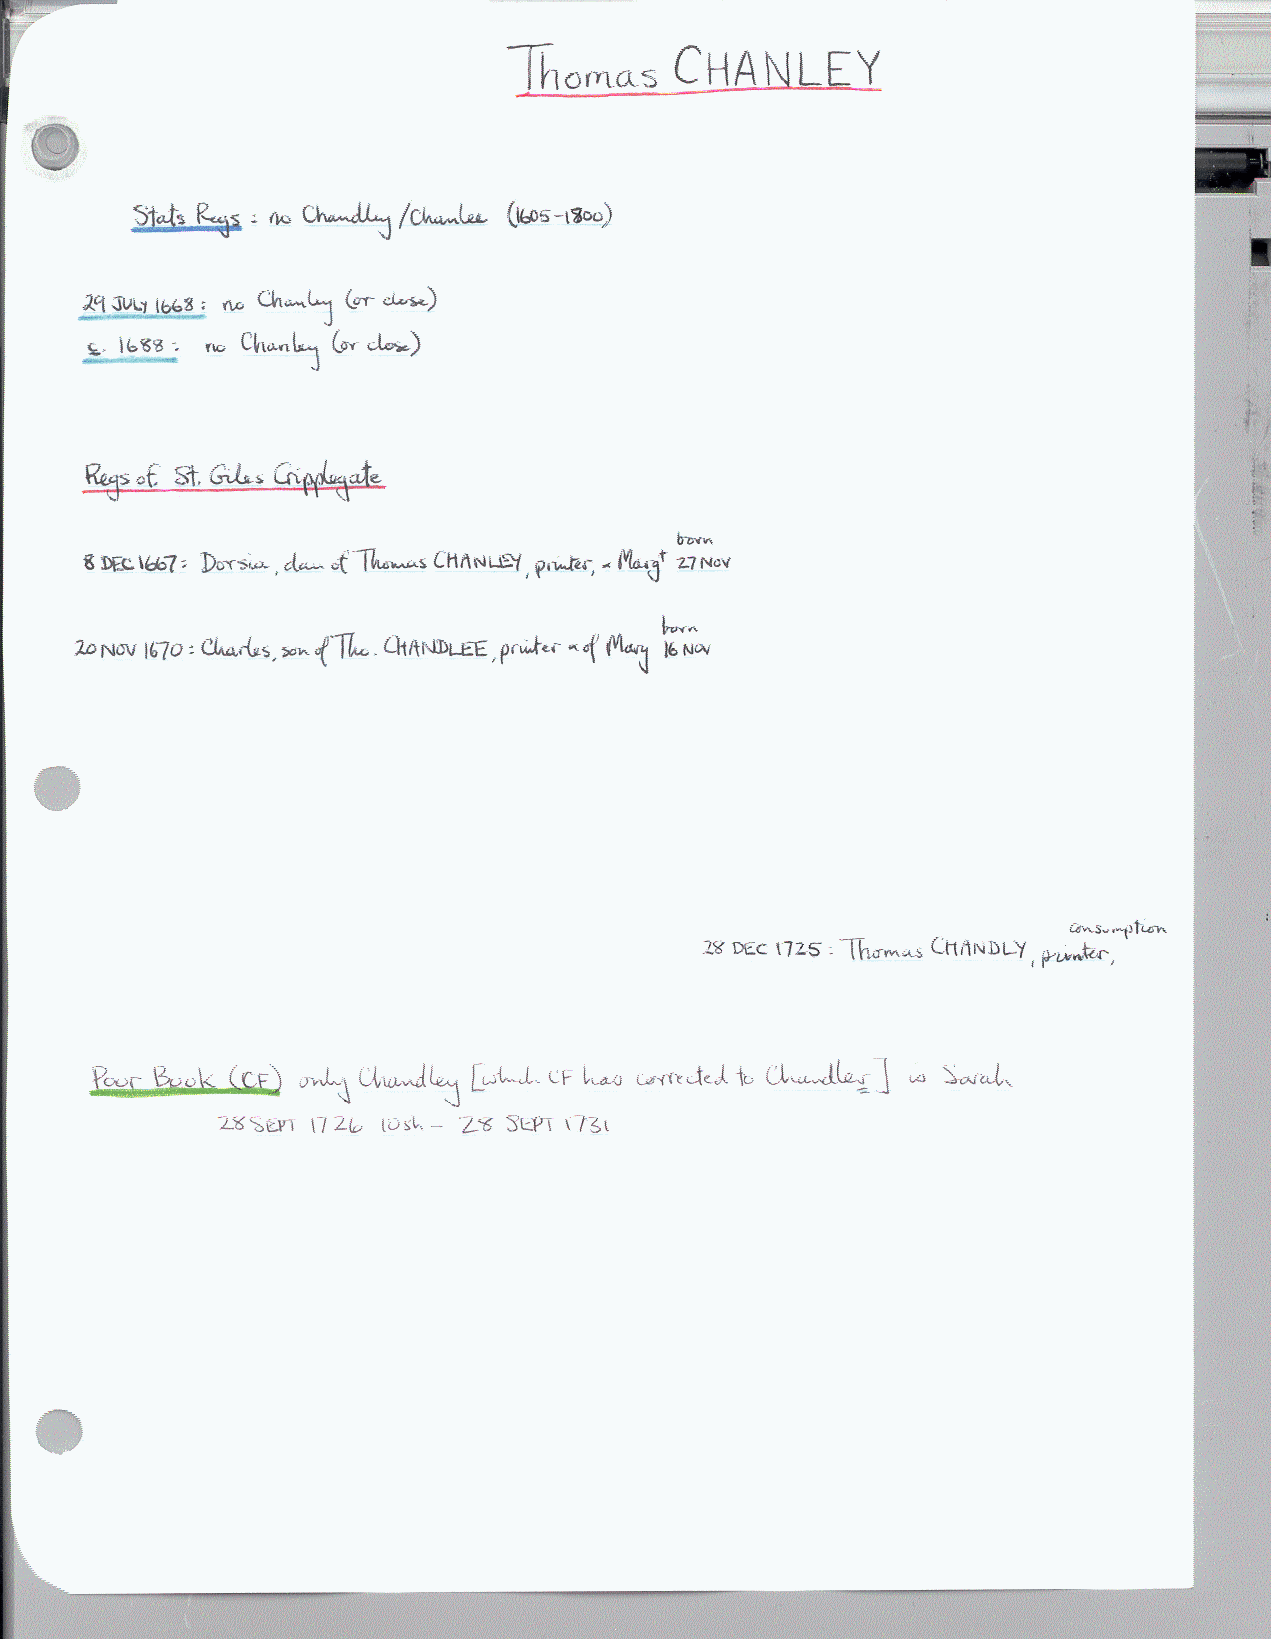 Thomas CHANLEY
Stats Regs : no Chandley/Chanlee (1605-1800)
29 JULY 1668 : no Chanley (or close)
c. 1688 : no Chanley (or close)
Regs of St. Giles Cripplegate
born
8 DEC 1667 : Dorsive, dau of Thomas CHANLEY, printer, & Margt 27 NOV
born
20 NOV 1670 : Charles, son of Tho. CHANDLEE, printer & of Mary 16 NOV
consumption
28 DEC 1725 : Thomas CHANDLY, printer,
Poor Book (CF) only Chandley [which CF has corrected to Chandler] is Sarah
28 SEPT 1726 10sh - 28 SEPT 1731